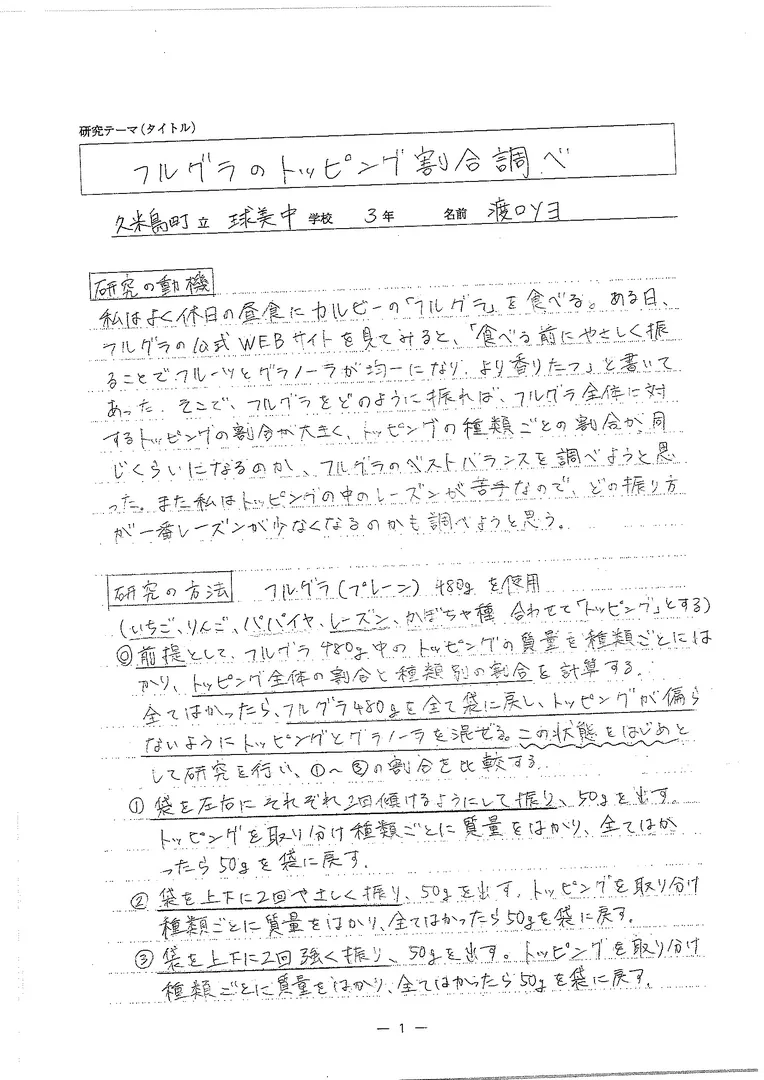 研究テーマ(タイトル)
フルグラのトッピング割合調べ
久米島町立 球美中学校 3年 名前 渡口リヨ
研究の動機
私はよく休日の昼食にカルビーの「フルグラ」を食べる。ある日、
フルグラの公式WEBサイトを見てみると、「食べる前にやさしく振
ることでフルーツとグラノーラが均一になり、より香りたつ」と書いて
あった。そこで、フルグラをどのように振れば、フルグラ全体に対
するトッピングの割合が大きく、トッピングの種類ごとの割合が同
じくらいになるのか、フルグラのベストバランスを調べようと思
った。また私はトッピングの中のレーズンが苦手なので、どの振り方
が一番レーズンが少なくなるのかも調べようと思う。
研究の方法 フルグラ(プレーン)480gを使用
(いちご、りんご、パパイヤ、レーズン、かぼちゃ種 合わせて「トッピング」とする)
◎前提として、フルグラ480g中のトッピングの質量を種類ごとには
かり、トッピング全体の割合と種類別の割合を計算する。
全てはかったら、フルグラ480gを全て袋に戻し、トッピングが偏ら
ないようにトッピングとグラノーラを混ぜる。この状態をはじめと
して研究を行い、①~③の割合を比較する。
① 袋を左右にそれぞれ2回傾けるようにして振り、50gを出す。
トッピングを取り分け種類ごとに質量をはかり、全てはか
ったら50gを袋に戻す。
② 袋を上下に2回やさしく振り、50gを出す。トッピングを取り分け
種類ごとに質量をはかり、全てはかったら50gを袋に戻す。
③ 袋を上下に2回強く振り、50gを出す。トッピングを取り分け
種類ごとに質量をはかり、全てはかったら50gを袋に戻す。
— 1 —